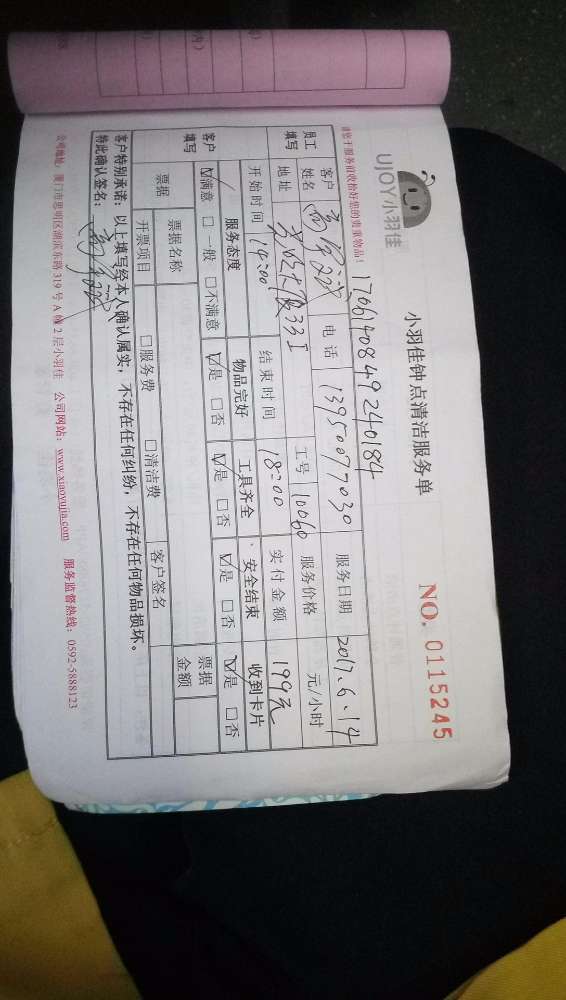 UJOY小羽佳
小羽佳钟点清洁服务单
NO. 0115245
1706140849240184
请您于服务前收检好您的贵重物品!
员工填写
客户姓名 电话 13950077030 服务日期 2017.6.14
地址 工号 10060 服务价格 元/小时
开始时间 14:00 结束时间 18:00 实付金额 199元
客户填写
服务态度 物品完好 工具齐全 安全结束 收到卡片
☑满意 □一般 □不满意 ☑是 □否 ☑是 □否 ☑是 □否 ☑是 □否
票据 票据名称 票据金额
开票项目 □服务费 □清洁费 客户签名
客户特别承诺:以上填写经本人确认属实,不存在任何纠纷,不存在任何物品损坏。
特此确认签名:
公司地址:厦门市思明区湖滨东路319号A幢2层小羽佳 公司网站:www.xiaoyujia.com 服务监督热线:0592-5888123